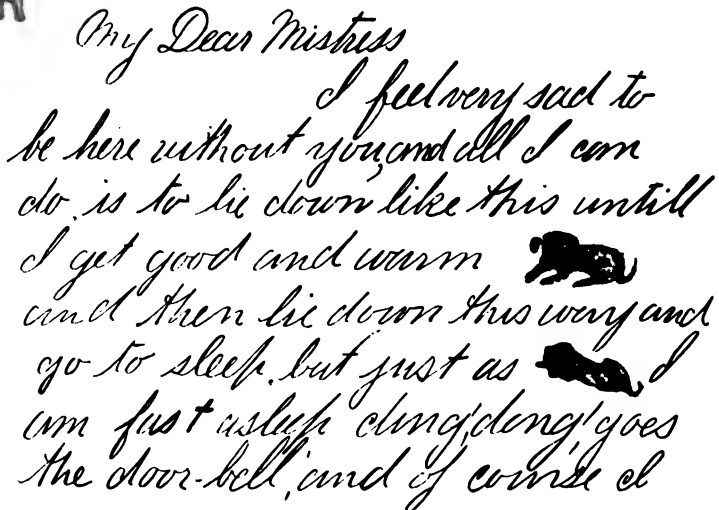 My Dear Mistress
I feel very sad to
be here without you, and all I can
do. is to lie down like this untill
I get good and warm
and then lie down this way and
go to sleep. but just as I
am fast asleep ding! dong! goes
the door-bell, and of course I